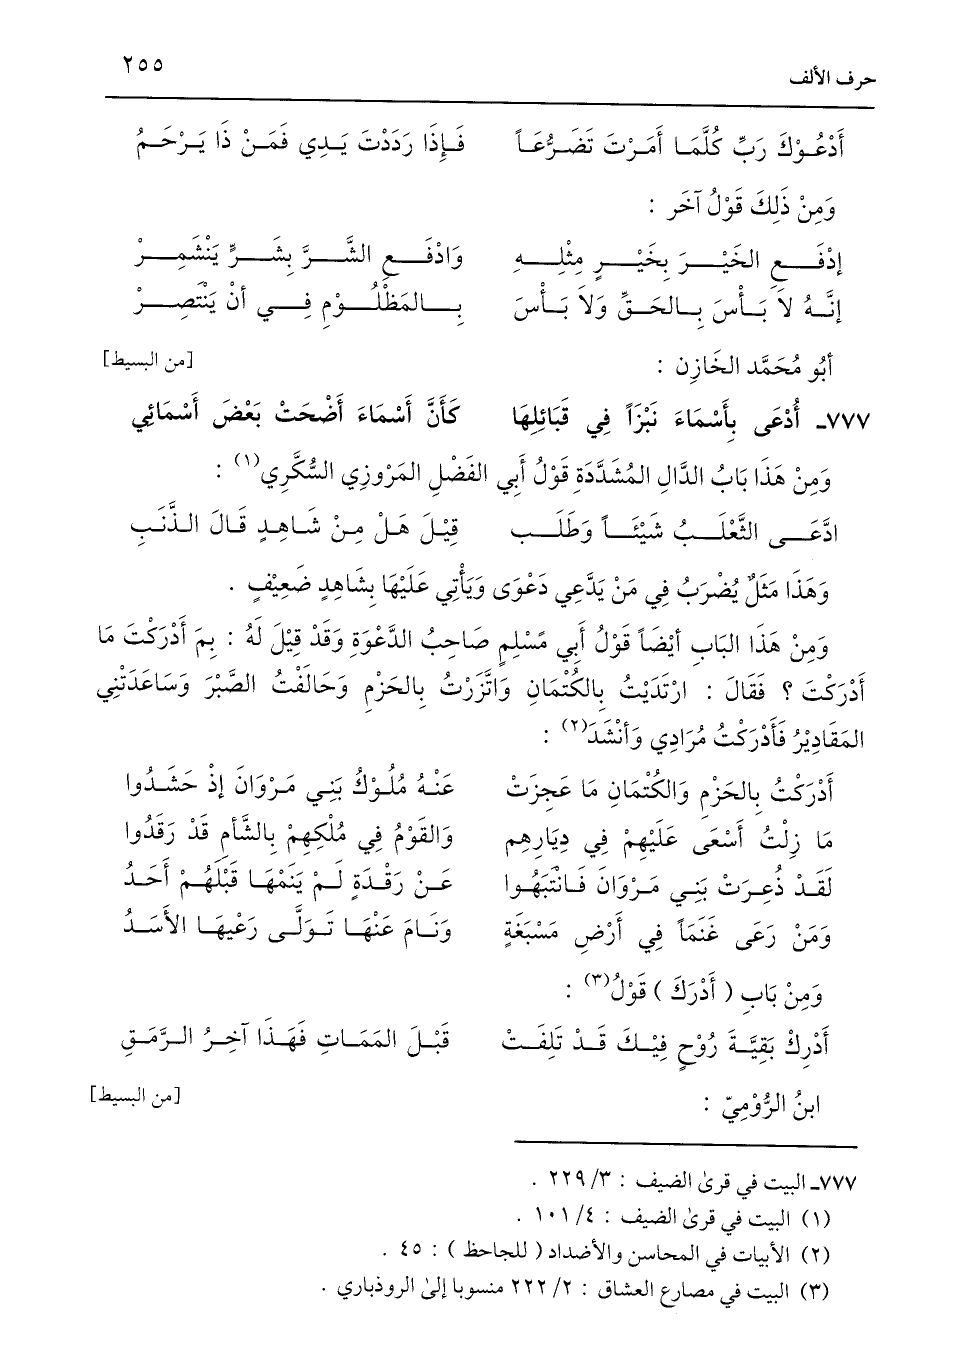 حرف الألف ٢٥٥
أَدْعُوْكَ رَبِّ كُلَّمَا أَمَرْتَ تَضَرُّعَاً فَإِذَا رَدَدْتَ يَدِي فَمَنْ ذَا يَرْحَمُ
وَمِنْ ذَلِكَ قَوْلُ آخَر :
إدْفَعِ الخَيْرَ بِخَيْرٍ مِثْلِهِ وَادْفَعِ الشَّرَّ بِشَرٍّ يَنْشَمِرْ
إنَّهُ لاَ بَأْسَ بِالحَقِّ وَلاَ بَأْسَ بِالمَظْلُوْمِ فِي أنْ يَنْتَصِرْ
أبُو مُحَمَّد الخَازِن : [من البسيط]
٧٧٧ـ أُدْعَى بِأَسْمَاءَ نَبْزَاً فِي قَبَائِلِهَا كَأَنَّ أَسْمَاءَ أَضْحَتْ بَعْضَ أَسْمَائِي
وَمِنْ هَذَا بَابُ الدَّالِ المُشَدَّدَةِ قَوْلُ أبِي الفَضْلِ المَرْوزِي السُّكَّرِي(١) :
ادَّعَى الثَّعْلَبُ شَيْئَاً وَطَلَب قِيْلَ هَلْ مِنْ شَاهِدٍ قَالَ الذَّنَبِ
وَهَذَا مَثَلٌ يُضْرَبُ فِي مَنْ يَدَّعِي دَعْوَى وَيَأْتِي عَلَيْهَا بِشَاهِدٍ ضَعِيْفٍ .
وَمِنْ هَذَا البَابِ أيْضَاً قَوْلُ أبِي مُسْلِمٍ صَاحِبُ الدَّعْوَةِ وَقَدْ قِيْلَ لَهُ : بِمَ أدْرَكْتَ مَا
أدْرَكْتَ ؟ فَقَالَ : ارْتَدَيْتُ بِالكُتْمَانِ وَاتَّزَرْتُ بِالحَزْمِ وَحَالَفْتُ الصَّبْرَ وَسَاعَدَتْنِي
المَقَادِيْرُ فَأدْرَكْتُ مُرَادِي وَأنْشَدَ(٢) :
أَدْرَكْتُ بِالحَزْمِ وَالكُتْمَانِ مَا عَجِزَتْ عَنْهُ مُلُوْكُ بَنِي مَرْوَانَ إذْ حَشَدُوا
مَا زِلْتُ أَسْعَى عَلَيْهِمْ فِي دِيَارِهِم وَالقَوْمُ فِي مُلْكِهِمْ بِالشَّأمِ قَدْ رَقَدُوا
لَقَدْ ذُعِرَتْ بَنِي مَرْوَانَ فَانْتَبَهُوا عَنْ رَقْدَةٍ لَمْ يَنَمْهَا قَبْلَهُمْ أحَدُ
وَمَنْ رَعَى غَنَمَاً فِي أَرْضِ مَسْبَغَةٍ وَنَامَ عَنْهَا تَوَلَّى رَعْيَهَا الأسَدُ
وَمِنْ بَابِ ( أَدْرَكَ ) قَوْلُ(٣) :
أَدْرِكْ بَقِيَّةَ رُوْحٍ فِيْكَ قَدْ تَلِفَتْ قَبْلَ المَمَاتِ فَهَذَا آخِرُ الرَّمَقِ
ابنُ الرُّوْمِيّ : [من البسيط]
٧٧٧ـ البيت في قرىٰ الضيف : ٣/ ٢٢٩ .
(١) البيت في قرىٰ الضيف : ٤/ ١٠١ .
(٢) الأبيات في المحاسن والأضداد ( للجاحظ ) : ٤٥ .
(٣) البيت في مصارع العشاق : ٢/ ٢٢٢ منسوبا إلىٰ الروذباري .